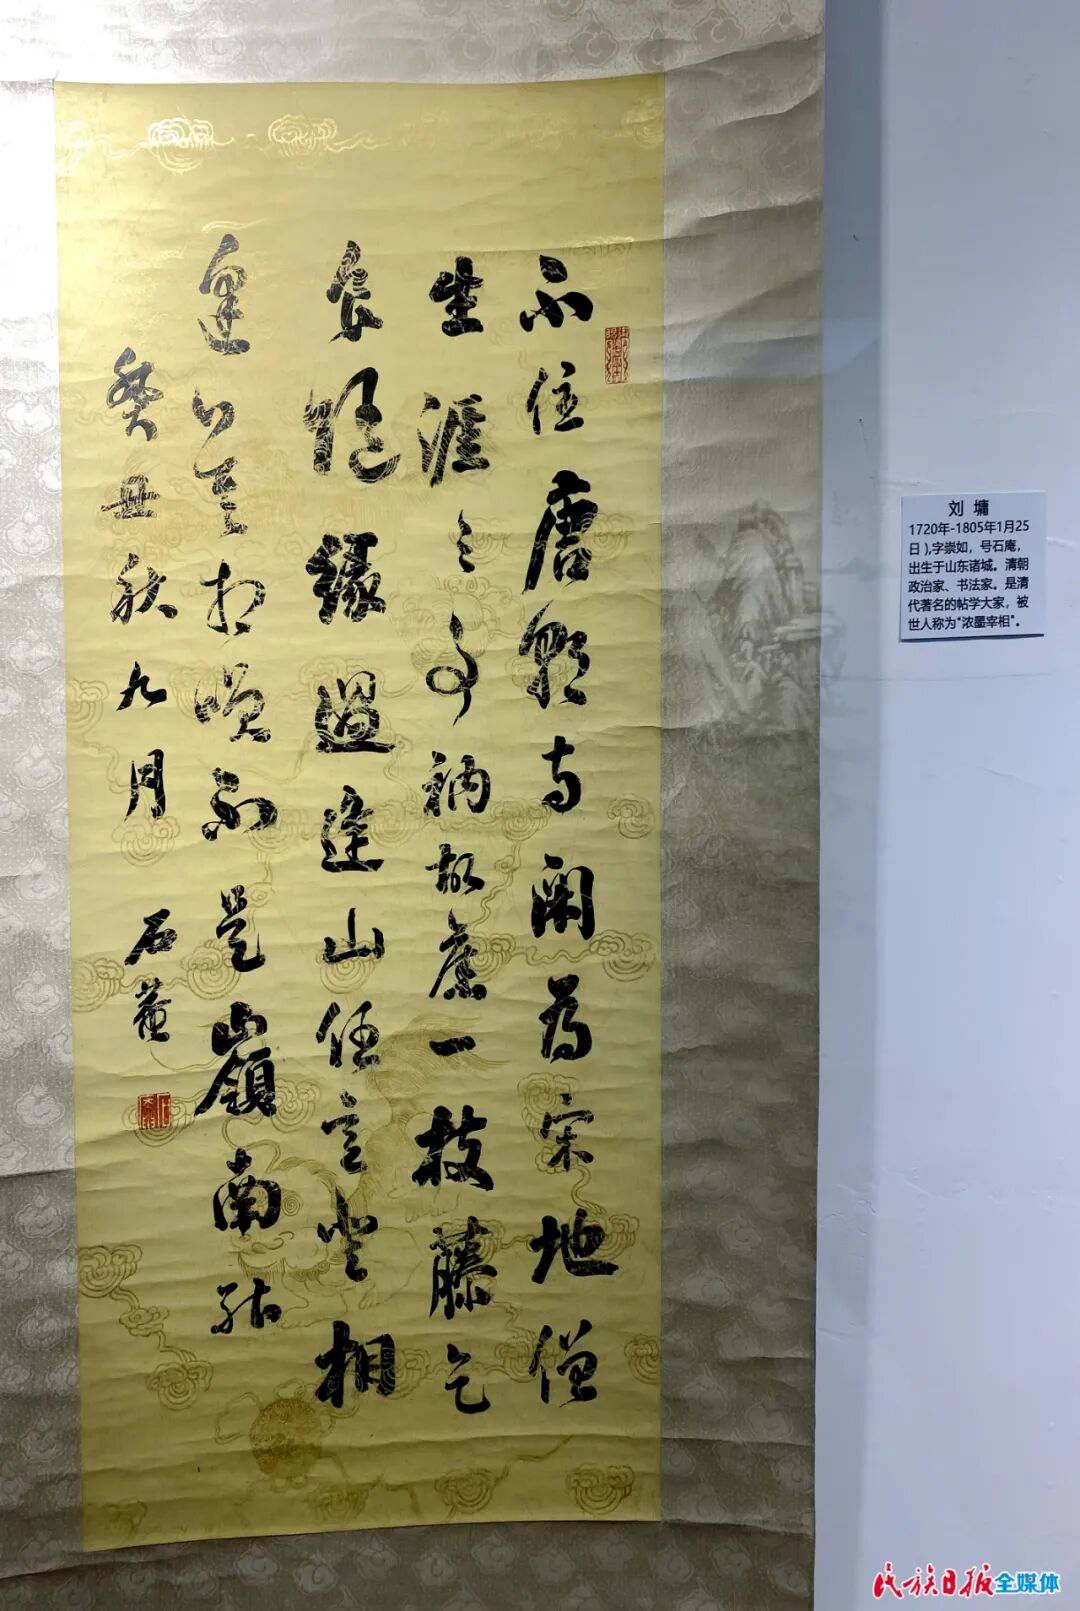 不住唐朝寺閑為宋地僧
生涯三事衲故舊一枝藤乞
食隨緣過逢山任意登相
逢莫相咲不是嶺南能
癸丑秋九月 石菴
刘 墉
1720年-1805年1月25
日),字崇如，号石庵，
出生于山东诸城。清朝
政治家、书法家。是清
代著名的帖学大家，被
世人称为“浓墨宰相”。
民族日报全媒体